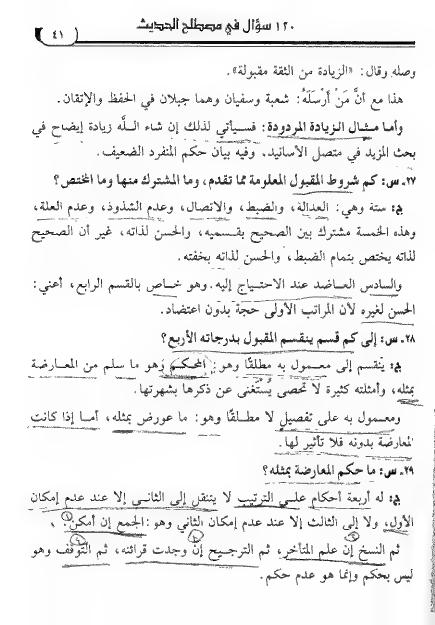 ١٢٠ سؤال في مصطلح الحديث
٤١
وصله وقال: «الزيادة من الثقة مقبولة».
هذا مع أنَّ مَنْ أَرْسَلَهُ: شعبة وسفيان وهما جبلان في الحفظ والإتقان.
وأما مثال الزيادة المردودة: فسيأتي لذلك إن شاء اللَّه زيادة إيضاح في
بحث المزيد في متصل الأسانيد. وفيه بيان حكم المنفرد الضعيف.
٢٧. س: كم شروط المقبول المعلومة مما تقدم، وما المشترك منها وما المختص؟
ج: ستة وهي: العدالة، والضبط، والاتصال، وعدم الشذوذ، وعدم العلة،
وهذه الخمسة مشترك بين الصحيح بقسميه، والحسن لذاته، غير أن الصحيح
لذاته يختص بتمام الضبط، والحسن لذاته بخفته.
والسادس العاضد عند الاحتياج إليه. وهو خاص بالقسم الرابع، أعني:
الحسن لغيره لأن المراتب الأولى حجة بدون اعتضاد.
٢٨. س: إلى كم قسم ينقسم المقبول بدرجاته الأربع؟
ج: ينقسم إلى معمول به مطلقًا وهو: المحكم وهو ما سلم من المعارضة
بمثله، وأمثلته كثيرة لا تحصى يُسْتَغْنى عن ذكرها بشهرتها.
ومعمول به على تفصيل لا مطلقًا وهو: ما عورض بمثله، أما إذا كانت
المعارضة بدونه فلا تأثير لها.
٢٩. س: ما حكم المعارضة بمثله؟
ج: له أربعة أحكام على الترتيب لا ينتقل إلى الثاني إلا عند عدم إمكان
الأول، ولا إلى الثالث إلا عند عدم إمكان الثاني وهو: الجمع إن أمكن.
ثم النسخ إن علم المتأخر، ثم الترجيح إن وجدت قرائنه، ثم التوقف وهو
ليس بحكم وإنما هو عدم حكم.